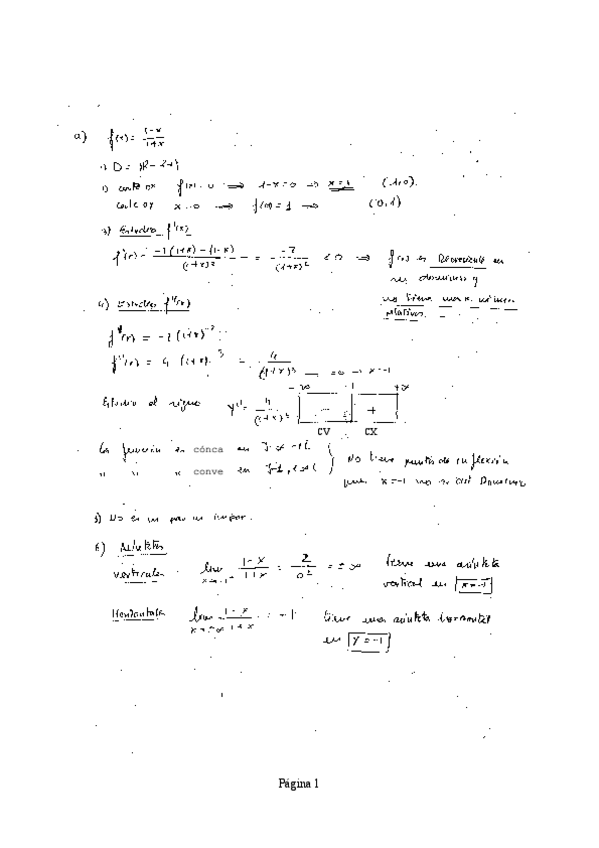 a) f(x) = 1-x / 1+x
1) D = R - {-1}
2) corte ox f(x)=0 ⟹ 1-x=0 ⟹ x=1 (1,0).
corte oy x=0 ⟹ f(x)=1 ⟹ (0,1)
3) Estudio f'(x)
f'(x) = -1(1+x)-(1-x) / (1+x)² = -2 / (1+x)² < 0 ⟹ f(x) es Decreciente en
su dominio y
no tiene
relativos.
4) Estudio f''(x)
f'(x) = -2(1+x)⁻²
f''(x) = 4 (1+x)⁻³ = 4 / (1+x)³ x=-1
-∞ -1 +∞
Estudio el signo y'' = 4 / (1+x)³ - +
CV CX
La función es cónca en ]-∞ -1[
" " " conve en ]-1, +∞[ No tiene puntos de inflexión
pues x=-1 no es del Dominio
5) No es ni par ni impar.
6) Asíntotas
verticales lim x→-1 1-x / 1+x = 2 / 0± = ±∞ tiene una asíntota
vertical en x=-1
Horizontales lim x→±∞ 1-x / 1+x = -1 tiene una asíntota horizontal
en y=-1
Página 1